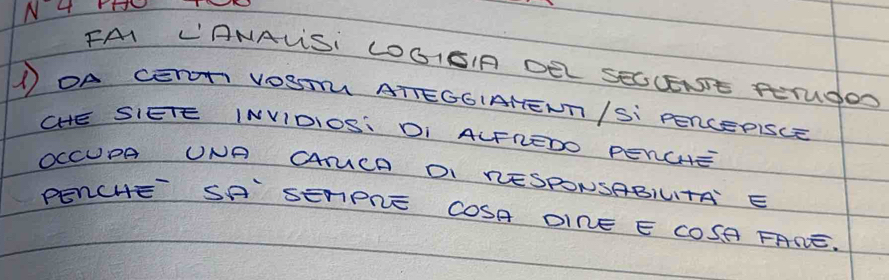 N°4 PAG
FAI L'ANALISI LOGICIA DEL SEGUENTE PERIODO
1) DA CERTI VOSTRI ATTEGGIAMENTI / SI PERCEPISCE
CHE SIETE INVIDIOSI DI ALFREDO PERCHÉ
OCCUPA UNA CARICA DI RESPONSABILITÀ E
PERCHÉ SÀ SEMPRE COSA DIRE E COSA FARE.